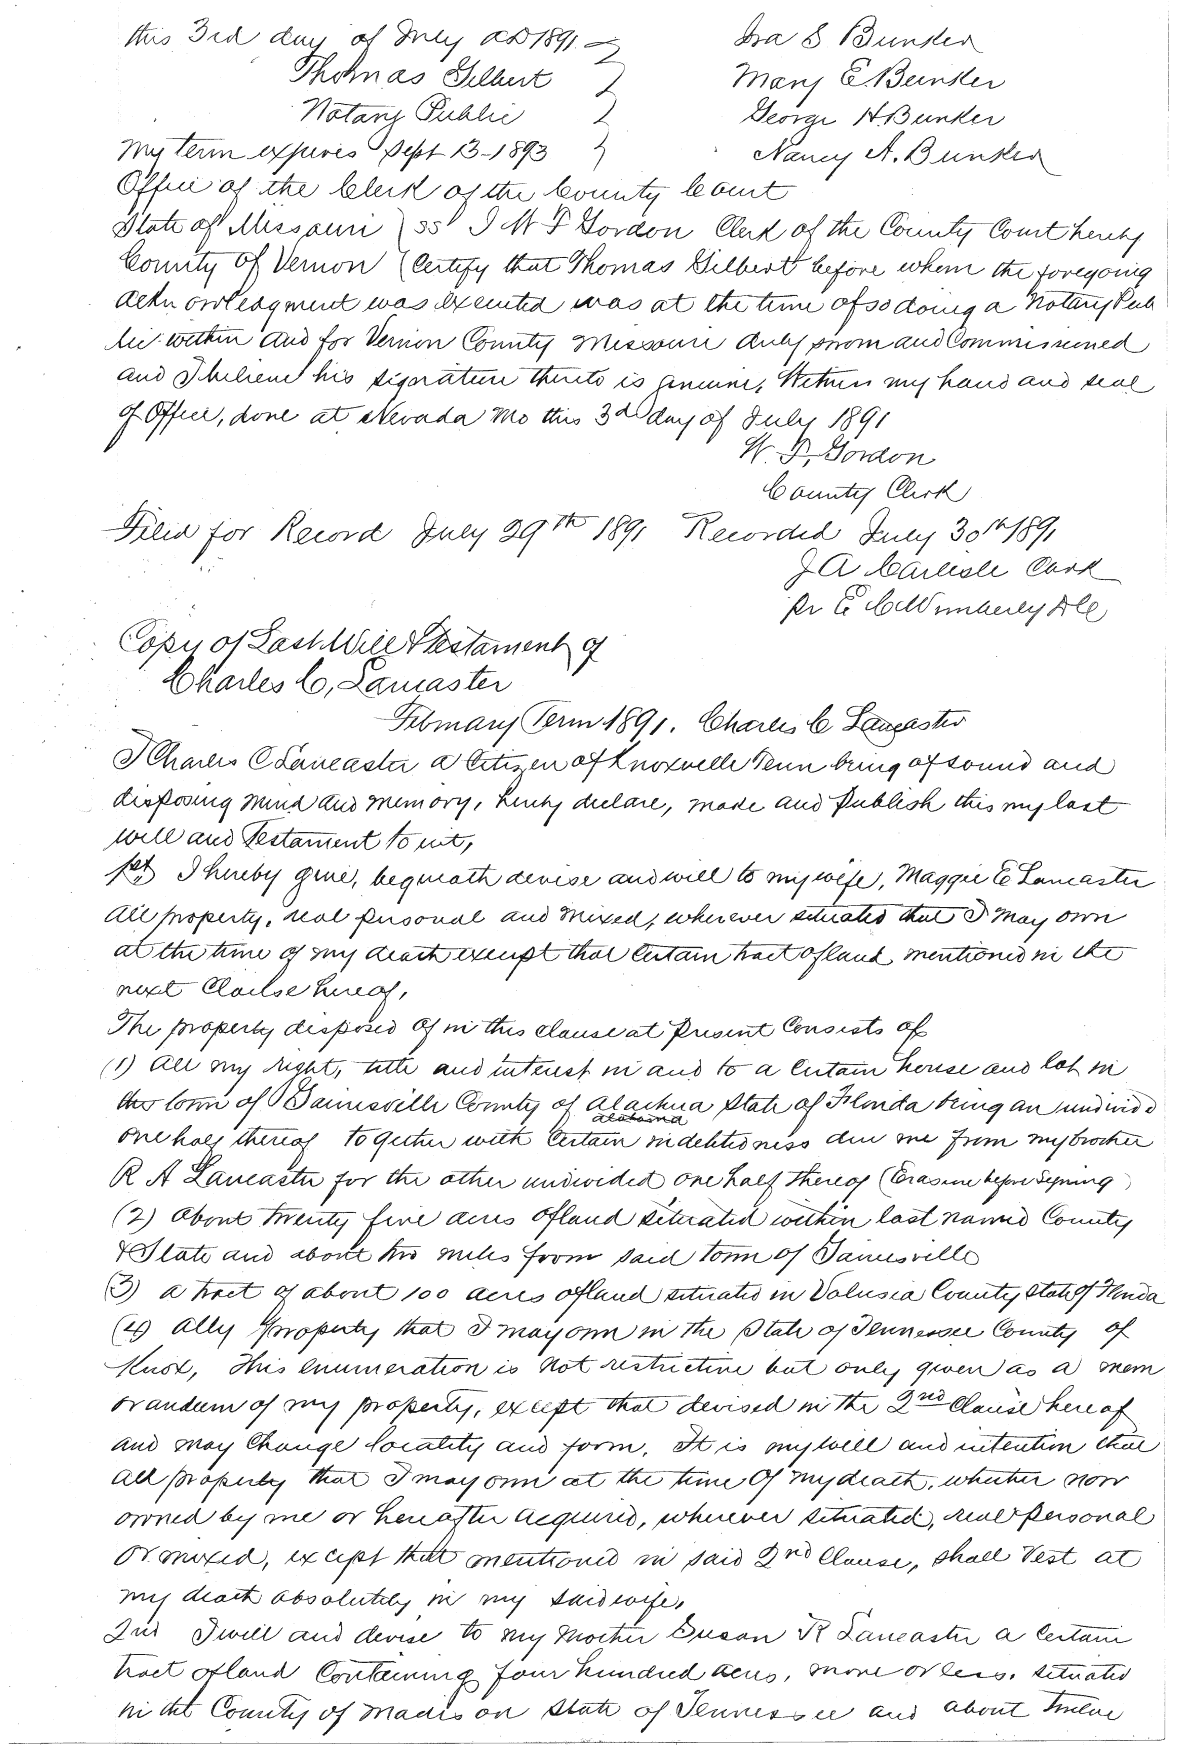 this 3rd day of July AD 1891. Ira S Bunker
Thomas Gilbert Mary E. Bunker
Notary Public George H. Bunker
My term expires Sept 13-1893 Nancy A. Bunker
Office of the Clerk of the County Court
State of Missouri ) SS I W F Gordon Clerk of the County Court hereby
County of Vernon ( Certify that Thomas Gilbert before whom the foregoing
acknowledgment was executed was at the time of so doing a Notary Pub
lic within and for Vernon County Missouri duly sworn and Commissioned
and I believe his signature thereto is genuine, Witness my hand and seal
of Office, done at Nevada Mo this 3d day of July 1891
W. F. Gordon
County Clerk
Filed for Record July 29th 1891 Recorded July 30th 1891
J A Carlisle Clerk
Pr E C Wimberly D C
Copy of Last Will & Testament of
Charles C, Lancaster
February Term 1891. Charles C Lancaster
I Charles C Lancaster a Citizen of Knoxville Tenn being of sound and
disposing mind and memory, hereby declare, make and Publish this my last
will and Testament to wit,
1st I hereby give, bequeath devise and will to my wife, Maggie E Lancaster
all property, real personal and mixed, wherever situated that I may own
at the time of my death except that certain tract of land mentioned in the
next Clause hereof,
The property disposed of in this clause at Present Consists of
(1) all my right, title and interest in and to a certain house and lot in
the town of Gainesville County of Alachua State of Florida being an undivided
one half thereof together with certain indebtedness due me from my brother
R A Lancaster for the other undivided one half thereof (Erasure before signing)
(2) about twenty five acres of land situated within last named County
& State and about two miles from said town of Gainesville
(3) a tract of about 100 acres of land situated in Volusia County State of Florida
(4) Any property that I may own in the State of Tennessee County of
Knox, This enumeration is not restrictive but only given as a mem
orandum of my property, except that devised in the 2nd Clause hereof
and may Change locality and form. It is my will and intention that
all property that I may own at the time Of my death, whether now
owned by me or hereafter acquired, wherever situated, real Personal
or mixed, except that mentioned in said 2nd Clause, shall Vest at
my death absolutely in my said wife.
2nd I will and devise to my Mother Susan R Lancaster a Certain
tract of land Containing four hundred acres, more or less, situated
in the County of Madison State of Tennessee and about twelve